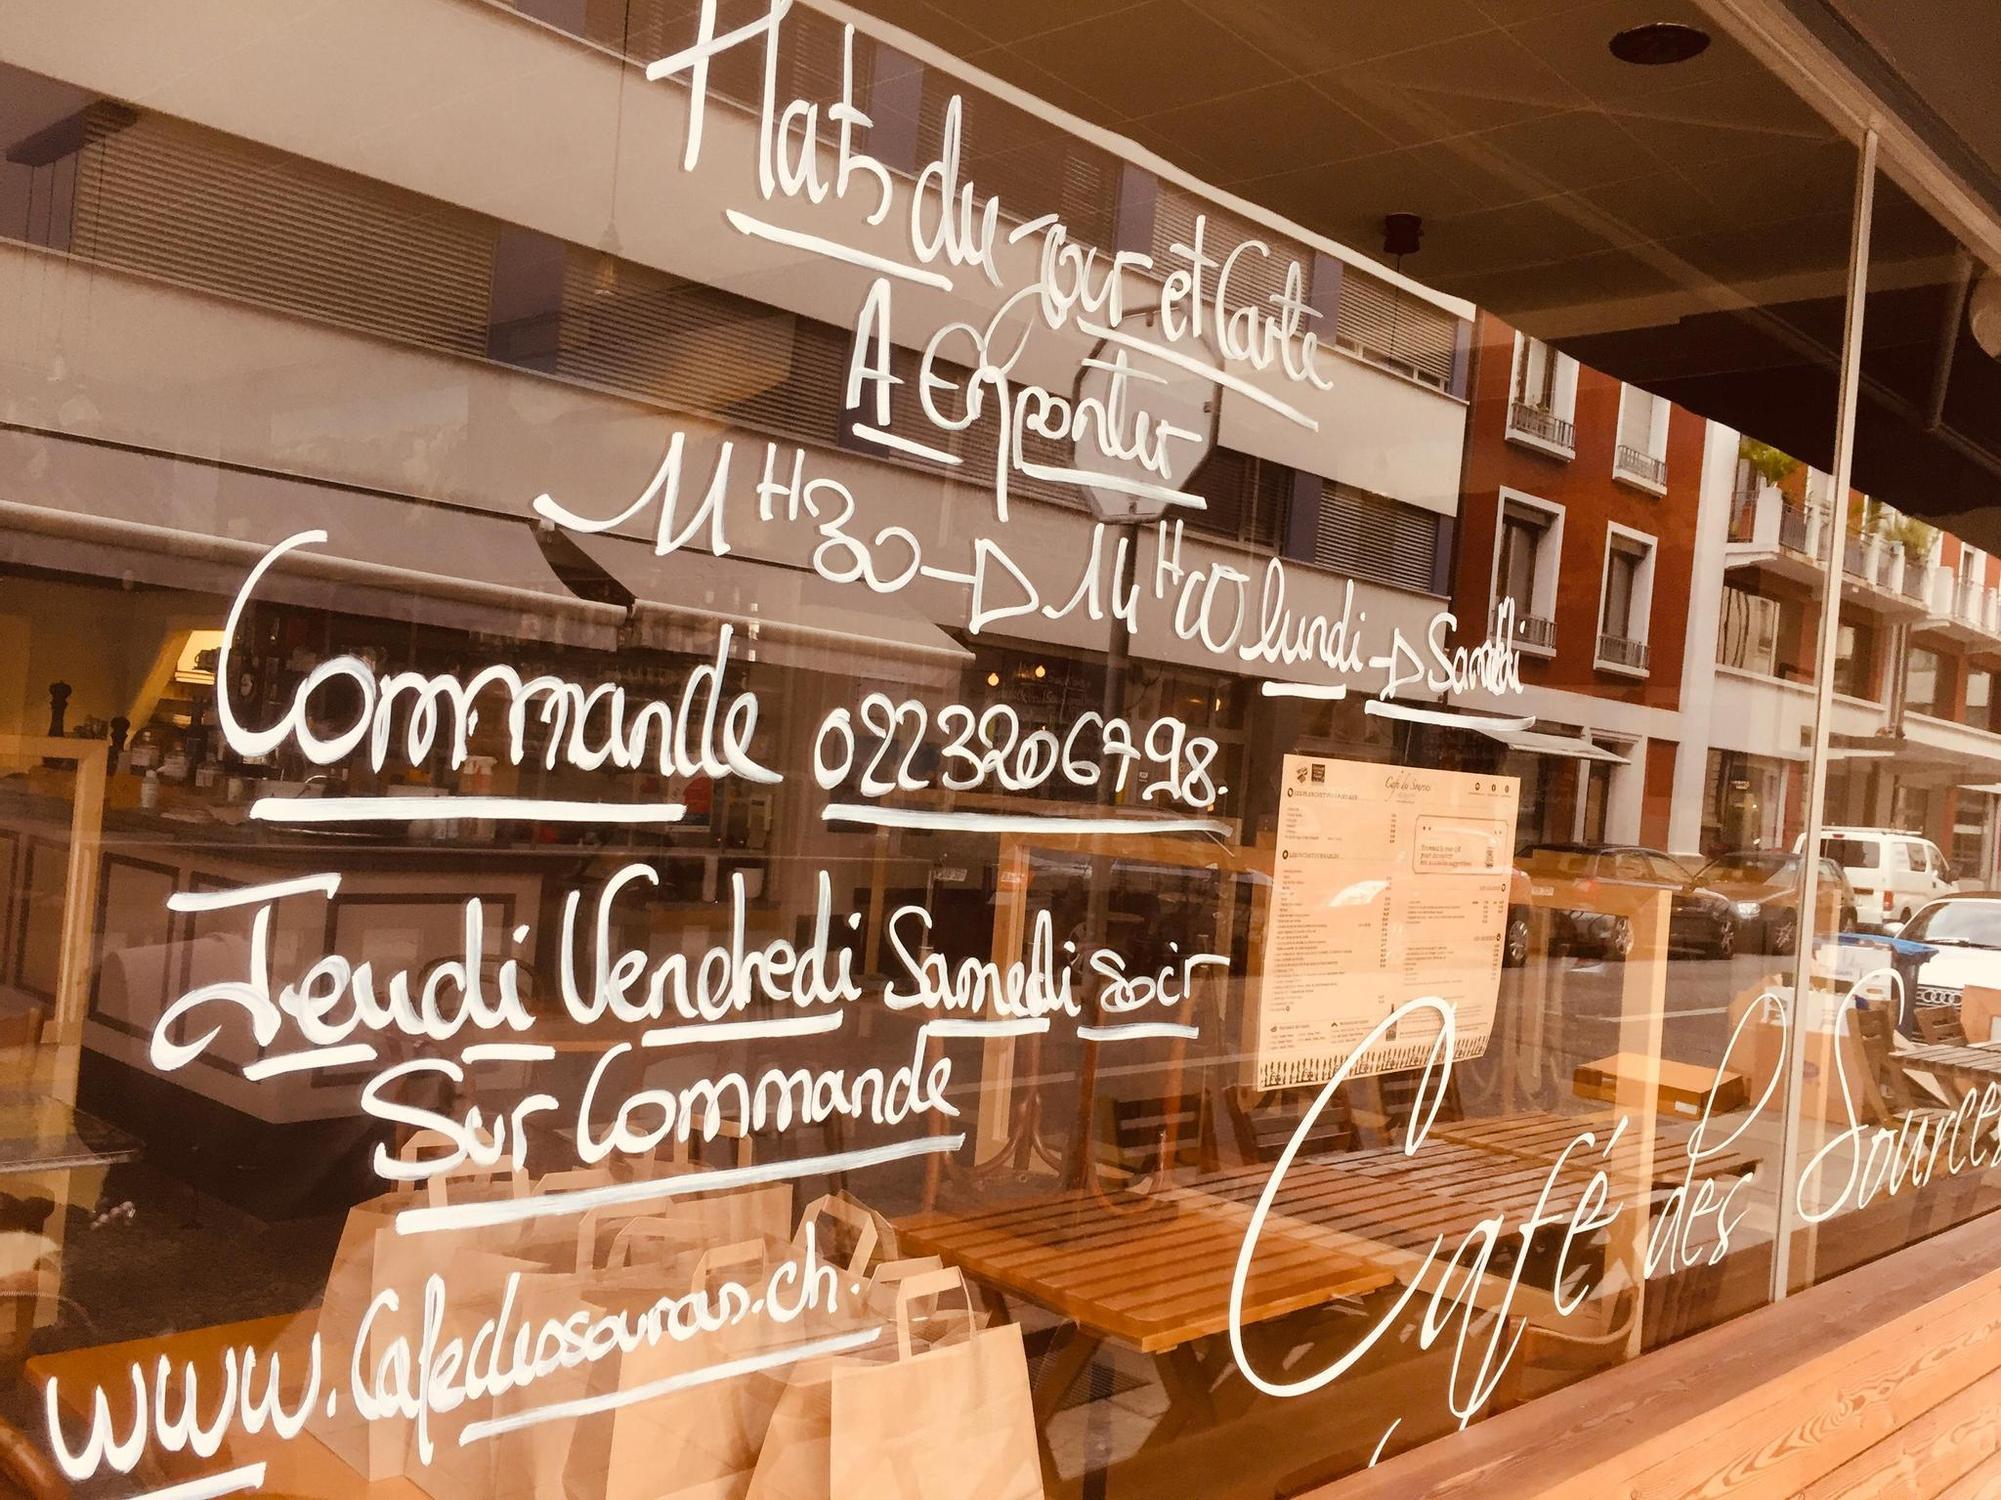 Plats du Jour et Carte
A Emporter
11H30-D 14H00 lundi-D Samedi
Commande 0223206798.
Jeudi Vendredi Samedi Soir
Sur Commande
www.Cafedessources.ch.
Café des Sources
Café des Sources